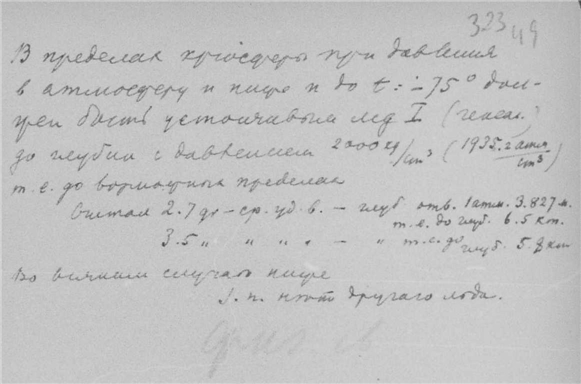 323 49
В пределах криосферы при давлении
в атмосферу и ниже и до t: ÷ 75° дол-
жен быть устойчивым лед I (гексаг.)
до глубин с давлением 2000 кг/cm³ (1935. г атм/cm³)
т.е. до пределах
Считая 2.7 гр – ср. уд. в. – глуб. отв. 1 атм. 3.827 м.
т.е. до глуб. 6.5 км.
3.5 „ „ „ „ – „ т.е. до глуб. 5. км
Во всяком случае ниже
з. п. нет другого льда.